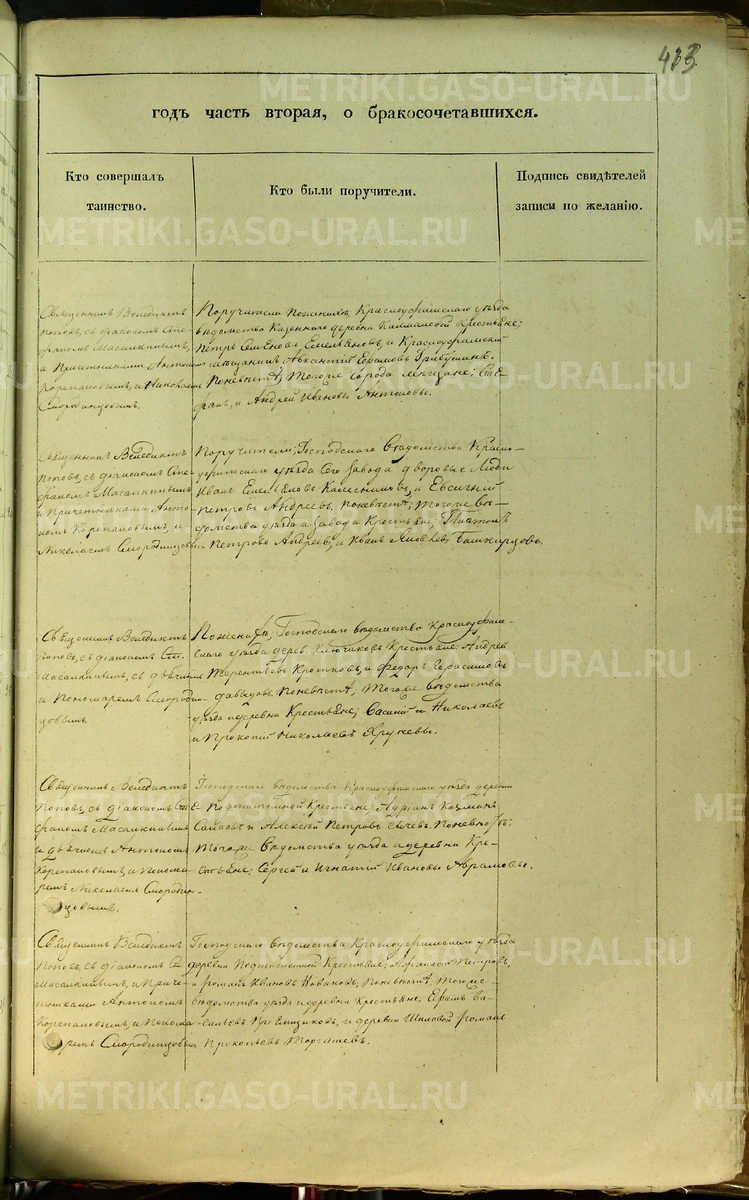 413
годъ часть вторая, о бракосочетавшихся.
Кто совершалъ
таинство.
Кто были поручители.
Подпись свидѣтелей
записи по желанію.
Священникъ Венедиктъ
Поповъ, съ діакономъ Сте-
фаномъ Масалкинымъ,
и Причетниками Антоніемъ
Корепановымъ, и Николаемъ
Смородинцовымъ.
Поручители Поженихѣ, Красноуфимскаго уѣзда
вѣдомства Казеннаго деревни Крестьяне;
Петръ Семеновъ Емельяновъ, и Красноуфимской
мѣщанинъ Авксентій Ефимовъ
Поневѣстѣ; Тогоже города мѣщане; Сте-
фанъ, и Андрей Ивановы
Священникъ Венедиктъ
Поповъ, съ діакономъ Сте-
фаномъ Масалкинымъ
и Причетниками Анто-
ніемъ Корепановымъ, и
Николаемъ Смородинцовымъ.
Поручители; Господскаго Вѣдомства Красно-
уфимскаго уѣзда Сего Завода дворовые Люди
Иванъ Емельяновъ и Евсигній
Петровъ Андреевъ, Поневѣстѣ; Тогоже Вѣ-
домства уѣзда и завода Крестьяне; Платонъ
Петровъ Андреевъ, и Иванъ Яковлевъ Башкирцовъ.
Священникъ Венедиктъ
Поповъ, съ діакономъ Ст.
Масалкинымъ, съ дьячкомъ
и Пономаремъ Смородин-
цовымъ
Поженихѣ, Господскаго вѣдомства Красноуфим-
скаго уѣзда дерев. Ключиковъ Крестьяне; Андрей
Терентьевъ Кротковъ, и Федоръ Герасимовъ
Давыдовъ, Поневѣстѣ, Тогоже вѣдомства
уѣзда и деревни Крестьяне; Василій и Николаевъ
и Прокопій Николаевъ Ярушевы.
Священникъ Венедиктъ
Поповъ, съ діакономъ Сте-
фаномъ Масалкинымъ
и дьячкомъ Антоніемъ
Корепановымъ, и Понома-
ремъ Николаемъ Смородин-
цовымъ.
Господскаго вѣдомства Красноуфимскаго уѣзда деревни
Крестьяне Адріанъ Козминъ
и Алексѣй Петровъ Поневѣстѣ;
Тогоже Вѣдомства уѣзда и деревни Кре-
стьяне; Сергей и Игнатій Ивановы Аврамовы.
Священникъ Венедиктъ
Поповъ, съ діакономъ Ст.
Масалкинымъ, и Приче-
тниками Антоніемъ
Корепановымъ, и Понома-
ремъ Смородинцовымъ
Господскаго вѣдомства Красноуфимскаго уѣзда
деревни Крестьяне; Афанасій Петровъ,
и Романъ Ивановъ Новиковъ, Поневѣстѣ Тогоже
вѣдомства уѣзда и деревни Крестьяне, Ефимъ Ва-
сильевъ и деревни Шиловой Романъ
Прокопьевъ Торгашевъ.
METRIKI.GASO-URAL.RU
METRIKI.GASO-URAL.RU
METRIKI.GASO-URAL.RU
METRIKI.GASO-URAL.RU
METRIKI.GASO-URAL.RU
METRIKI.GASO-URAL.RU
METRIKI.GASO-URAL.RU
METRIKI.GASO-URAL.RU